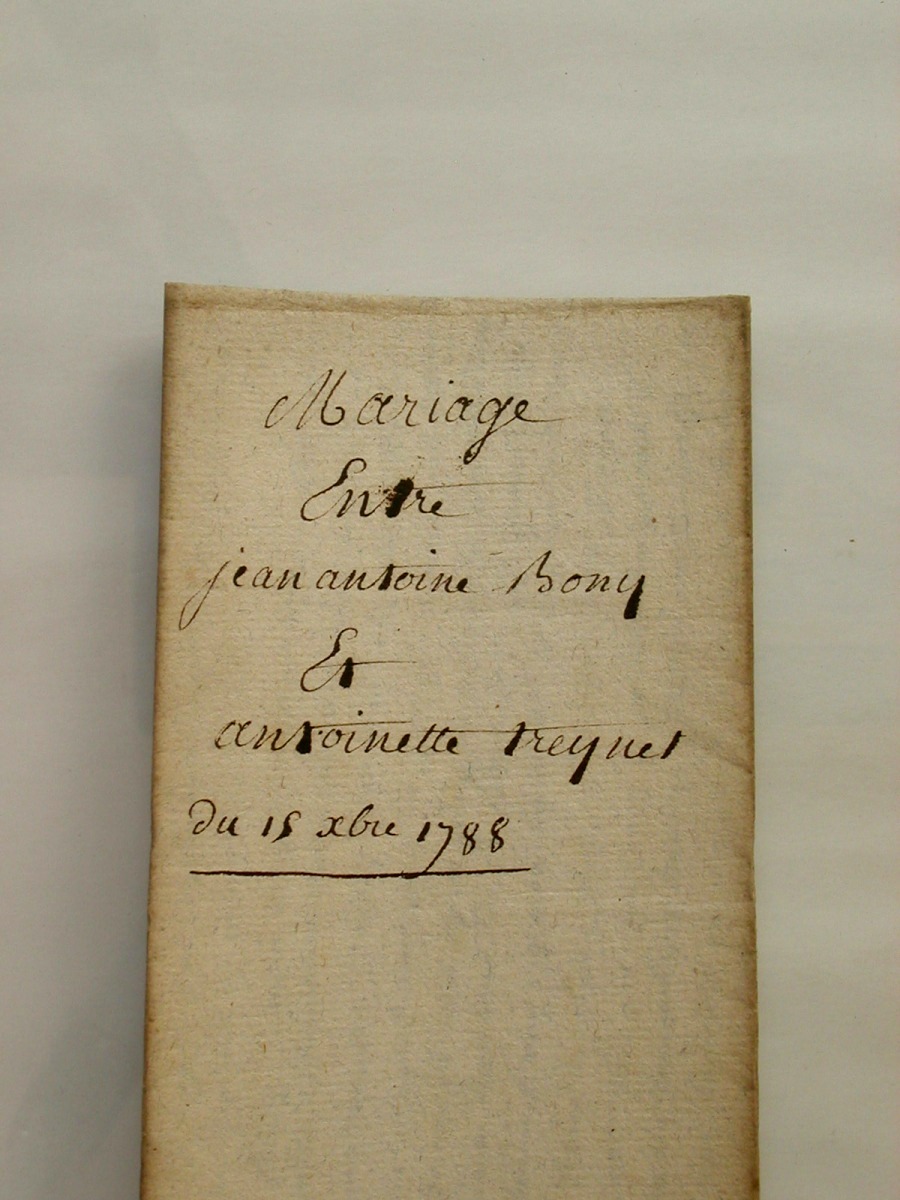 Mariage
Entre
jean antoine Bony
Et
antoinette treynet
du 15 xbre 1788